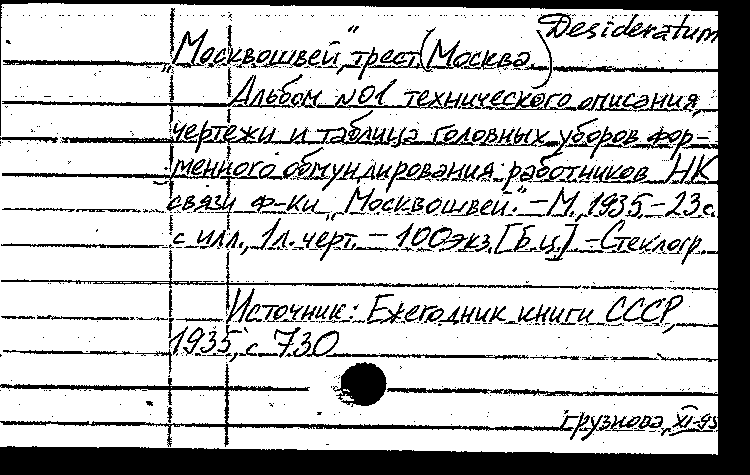 Desideratum
„Москвошвей", трест (Москва)
Альбом №1 технического описания,
чертежи и таблица головных уборов фор-
менного обмундирования работников НК
связи ф-ки „Москвошвей". – М., 1935. – 23 с.
с илл., 1 л. черт. – 100 экз. [Б.ц.] – Стеклогр.
Источник: Ежегодник книги СССР,
1935, с 730
Грузнова, XI-95